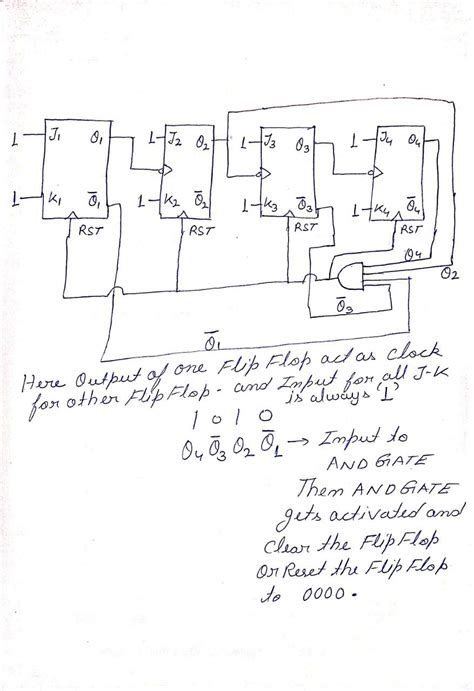 1 J1 Q1 1 J2 Q2 1 J3 Q3 1 J4 Q4
1 K1 Q̅1 1 K2 Q̅2 1 K3 Q̅3 1 K4 Q̅4
RST RST RST RST
Q4
Q2
Q̅3
Q̅1
Here Output of one Flip Flop act as Clock
for other Flip Flop - and Input for all J-K
is always '1'
1 0 1 0
Q4 Q̅3 Q2 Q̅1 → Input to
AND GATE
Then AND GATE
gets activated and
Clear the Flip Flop
Or Reset the Flip Flop
to 0000.